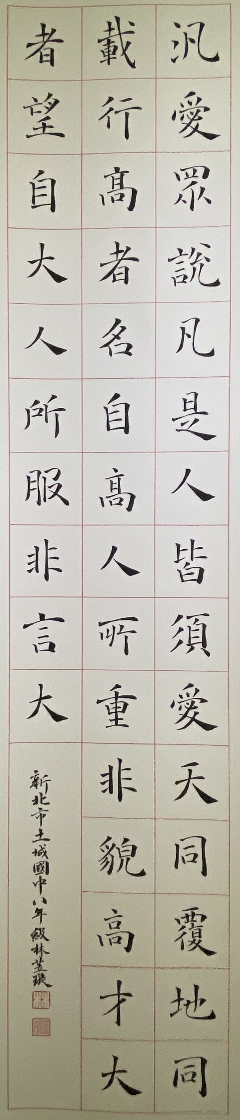 汎愛眾說凡是人皆須愛天同覆地同
載行高者名自高人所重非貌高才大
者望自大人所服非言大
新北市土城國中八年級林芸璇